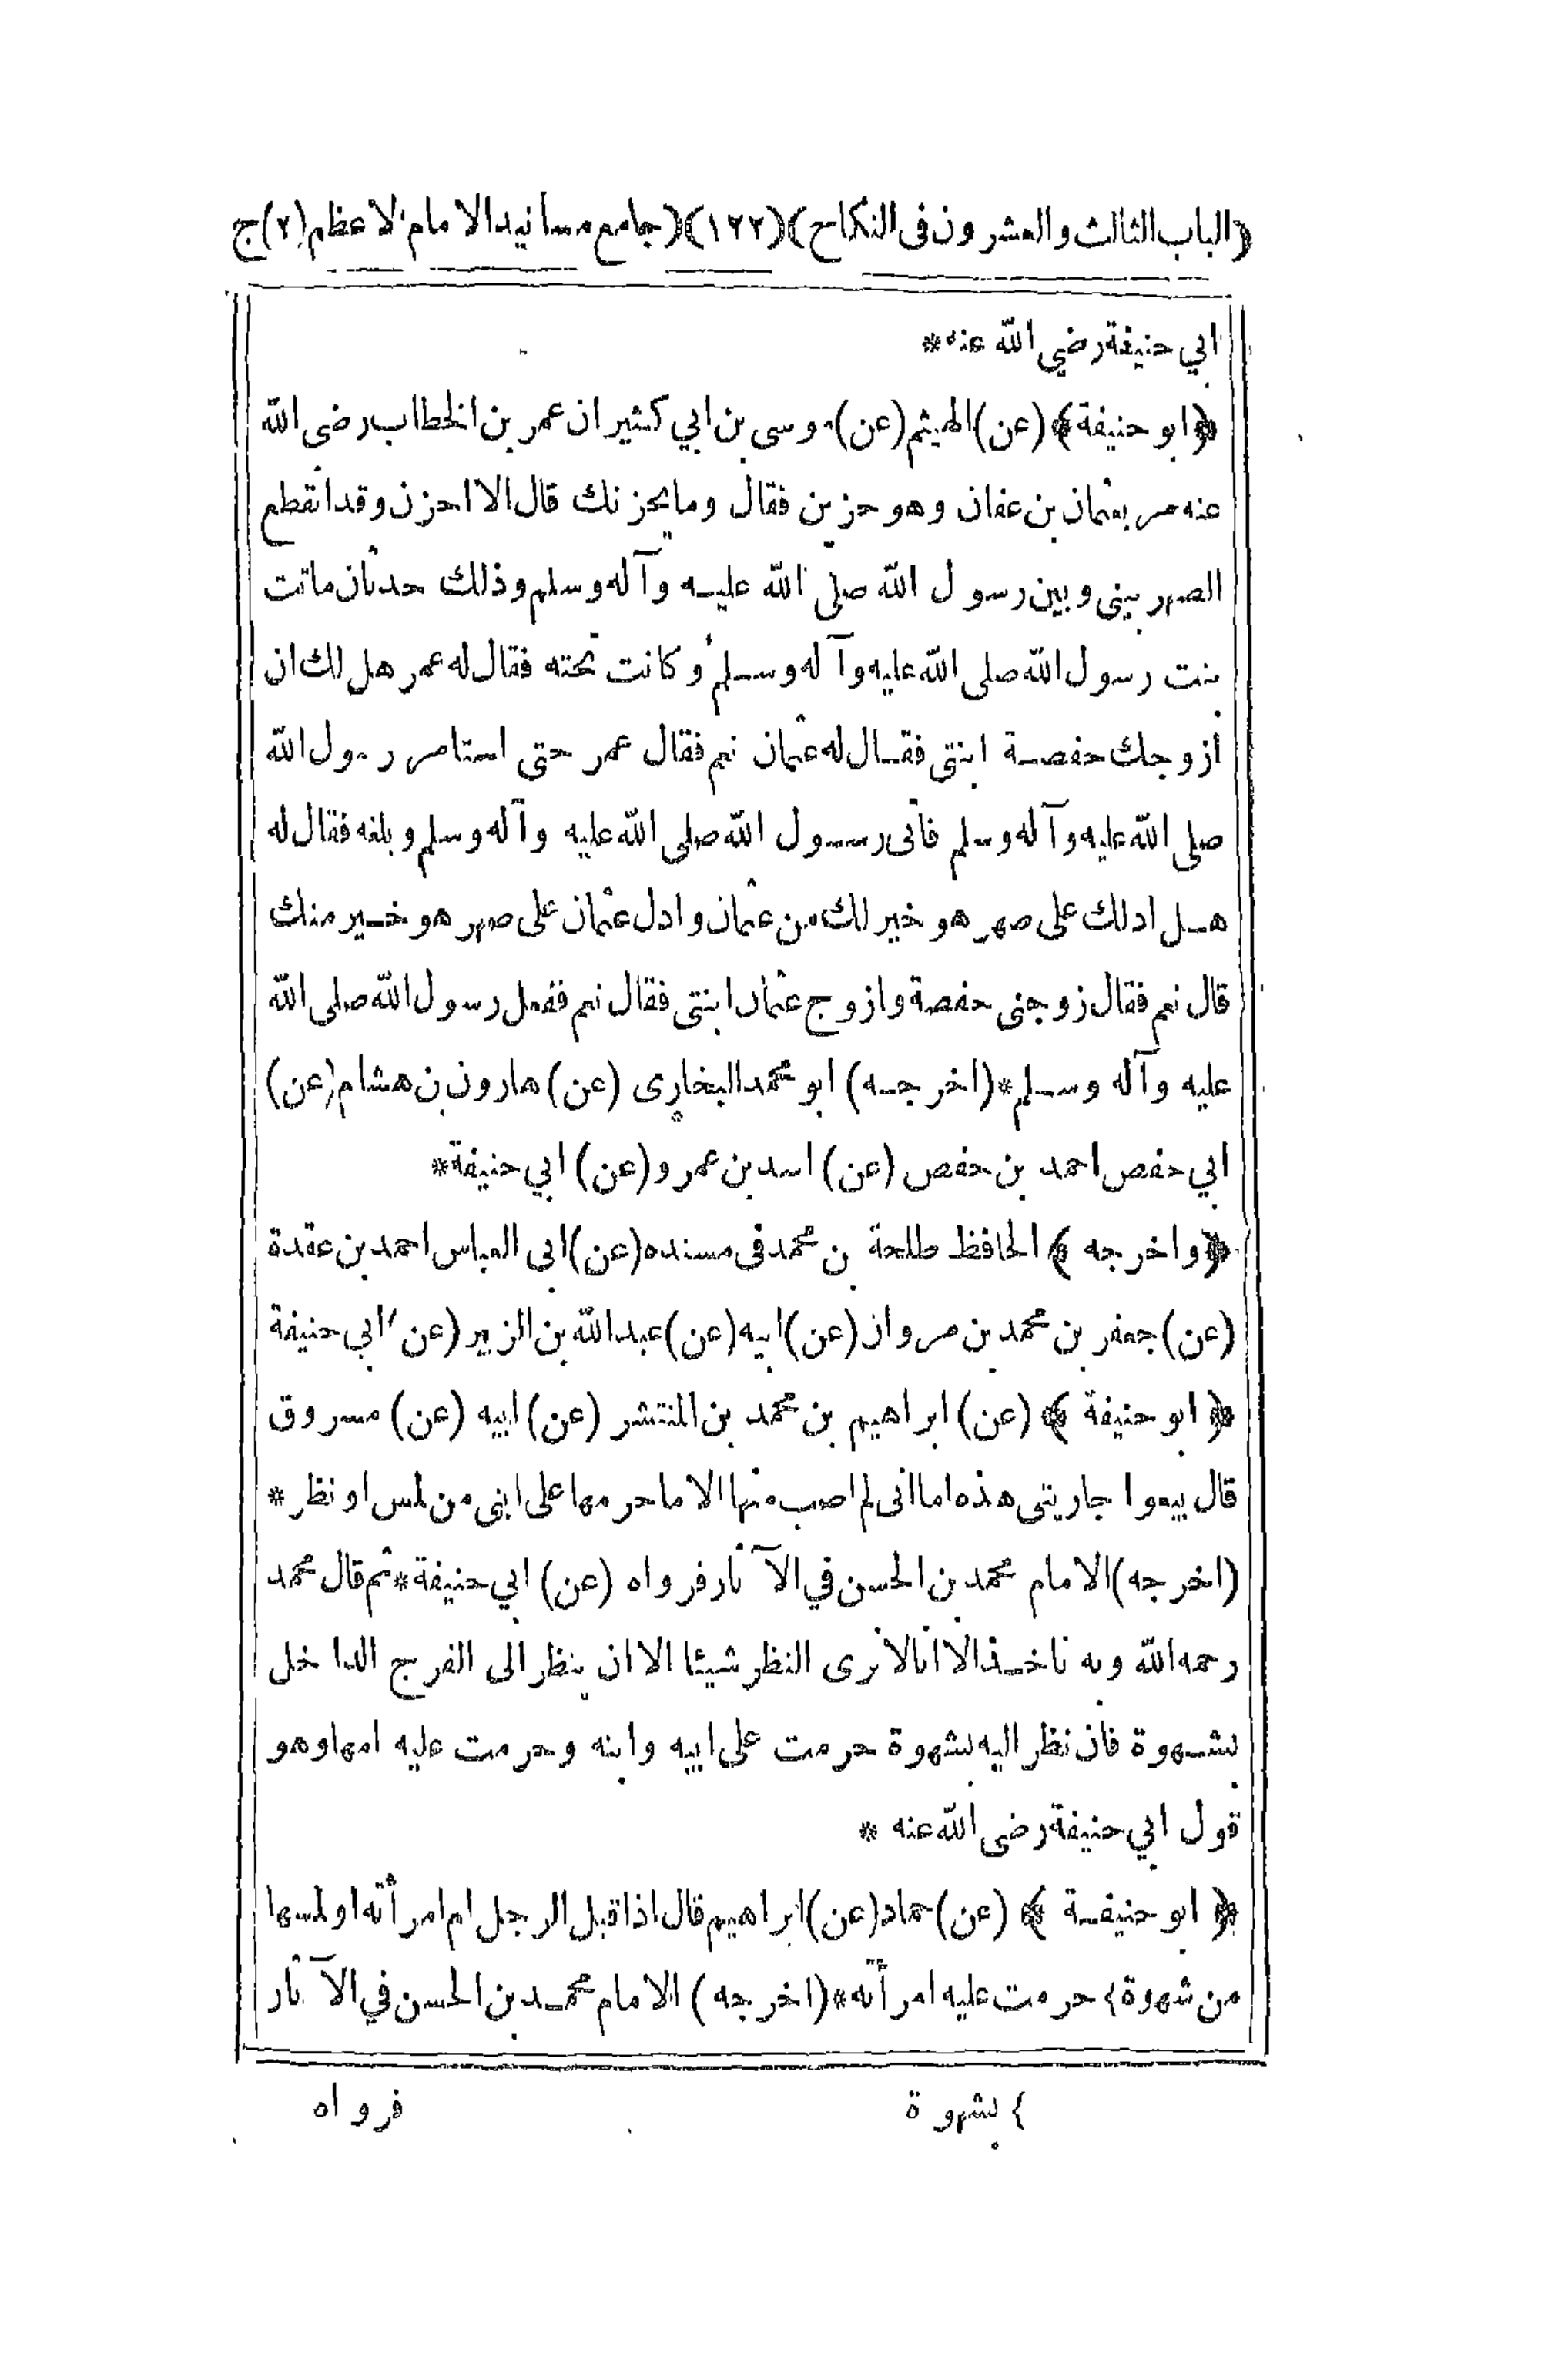 (الباب الثالث والعشرون فى النكاح) (١٢٢) (جامع مسانيد الامام الاعظم (٢) ج
ابي حنيفة رضي الله عنه*
﴿ابو حنيفة﴾ (عن) الهيثم (عن) موسى بن ابي كثير ان عمر بن الخطاب رضى الله
عنه مر بعثمان بن عفان وهو حزين فقال وما يحزنك قال الا احزن وقد انقطع
الصهر بينى وبين رسول الله صلى الله عليه وآله وسلم وذلك حدثان ماتت
بنت رسول الله صلى الله عليه وآله وسلم وكانت تحته فقال له عمر هل لك ان
أزوجك حفصة ابنتى فقال له عثمان نعم فقال عمر حتى استامر رسول الله
صلى الله عليه وآله وسلم فأتى رسول الله صلى الله عليه وآله وسلم وبلغه فقال له
هل ادلك على صهر هو خير لك من عثمان وادل عثمان على صهر هو خير منك
قال نعم فقال زوجنى حفصة وازوج عثمان ابنتى فقال نعم ففعل رسول الله صلى الله
عليه وآله وسلم* (اخرجه) ابو محمد البخارى (عن) هارون بن هشام (عن)
ابي حفص احمد بن حفص (عن) اسد بن عمرو (عن) ابي حنيفة*
﴿واخرجه﴾ الحافظ طلحة بن محمد فى مسنده (عن) ابى العباس احمد بن عقدة
(عن) جعفر بن محمد بن مروان (عن) ابيه (عن) عبد الله بن الزبير (عن) ابي حنيفة
﴿ابو حنيفة﴾ (عن) ابراهيم بن محمد بن المنتشر (عن) ابيه (عن) مسروق
قال بيعوا جاريتى هذه اما انى لم اصب منها الا ما حرمها على ابنى من لمس او نظر *
(اخرجه) الامام محمد بن الحسن في الآثار فرواه (عن) ابي حنيفة* ثم قال محمد
رحمه الله وبه ناخذ الا انا لا نرى النظر شيئا الا ان ينظر الى الفرج الداخل
بشهوة فان نظر اليه بشهوة حرمت على ابيه وابنه وحرمت عليه امها وهو
قول ابي حنيفة رضى الله عنه *
﴿ابو حنيفة﴾ (عن) حماد (عن) ابراهيم قال اذا قبل الرجل ام امرأته او لمسها
من شهوة} حرمت عليه امرأته* (اخرجه) الامام محمد بن الحسن في الآثار
} بشهوة فرواه